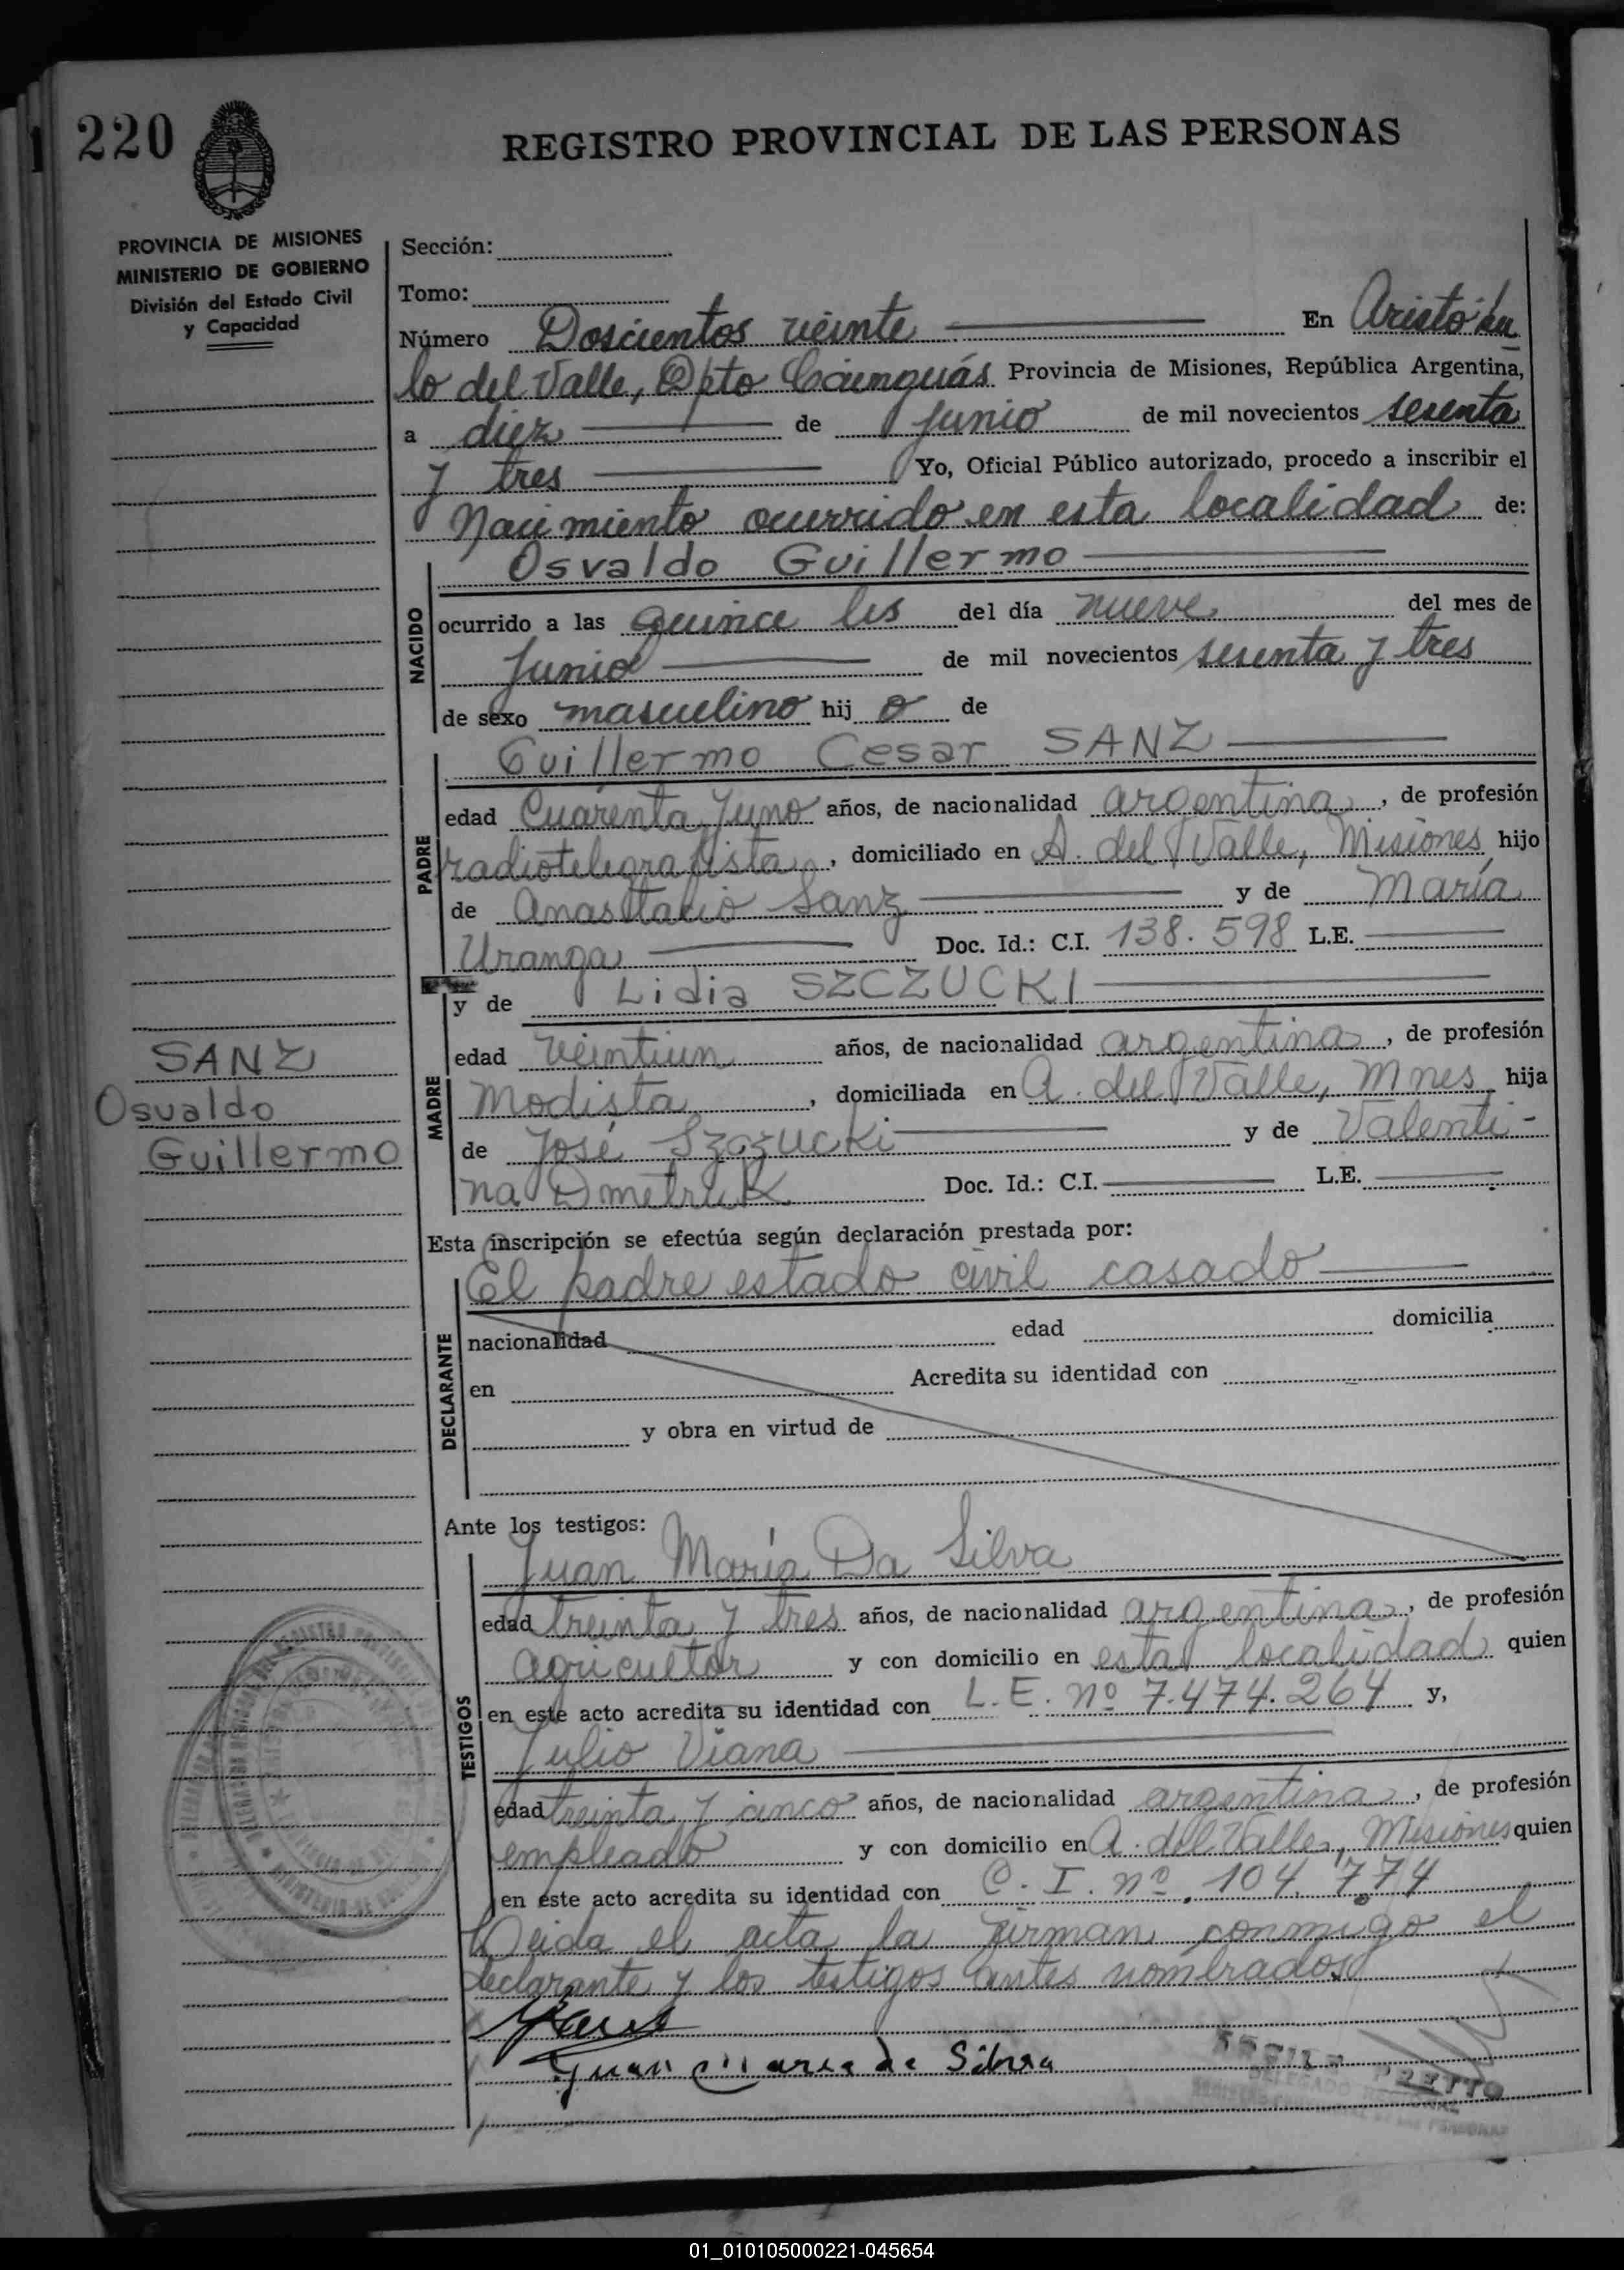 220
REGISTRO PROVINCIAL DE LAS PERSONAS
PROVINCIA DE MISIONES
MINISTERIO DE GOBIERNO
División del Estado Civil
y Capacidad
Sección:
Tomo:
Número Doscientos veinte En Aristóbu
lo del Valle, Dpto Cainguás Provincia de Misiones, República Argentina,
a diez de Junio de mil novecientos sesenta
y tres Yo, Oficial Público autorizado, procedo a inscribir el
Nacimiento ocurrido en esta localidad de:
NACIDO
Osvaldo Guillermo
ocurrido a las quince hs del día nueve del mes de
Junio de mil novecientos sesenta y tres
de sexo masculino hij o de
PADRE
Guillermo Cesar SANZ
edad Cuarenta y uno años, de nacionalidad argentina, de profesión
radiotelegrafista, domiciliado en A. del Valle, Misiones hijo
de Anastacio Sanz y de María
Uranga Doc. Id.: C.I. 138.598 L.E.
MADRE
y de Lidia SZCZUCKI
edad veintiun años, de nacionalidad argentina, de profesión
Modista, domiciliada en A. del Valle, Mnes hija
de José Szczucki y de Valenti-
na Dmetruk Doc. Id.: C.I. L.E.
SANZ
Osvaldo
Guillermo
Esta inscripción se efectúa según declaración prestada por:
DECLARANTE
El padre estado civil casado
nacionalidad edad domicilia
en Acredita su identidad con
y obra en virtud de
Ante los testigos:
TESTIGOS
Juan María Da Silva
edad treinta y tres años, de nacionalidad argentina, de profesión
agricultor y con domicilio en esta localidad quien
en este acto acredita su identidad con L.E. nº 7.474.264 y,
Julio Viana
edad treinta y cinco años, de nacionalidad argentina, de profesión
empleado y con domicilio en A. del Valle, Misiones quien
en este acto acredita su identidad con C.I. nº 104.774
Leida el acta la firman conmigo el
declarante y los testigos antes nombrados
Juan Maria da Silva
PRETTO
DELEGADO
01_010105000221-045654